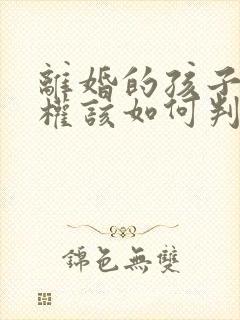 離婚的孩子
權該如何判
錦色無雙